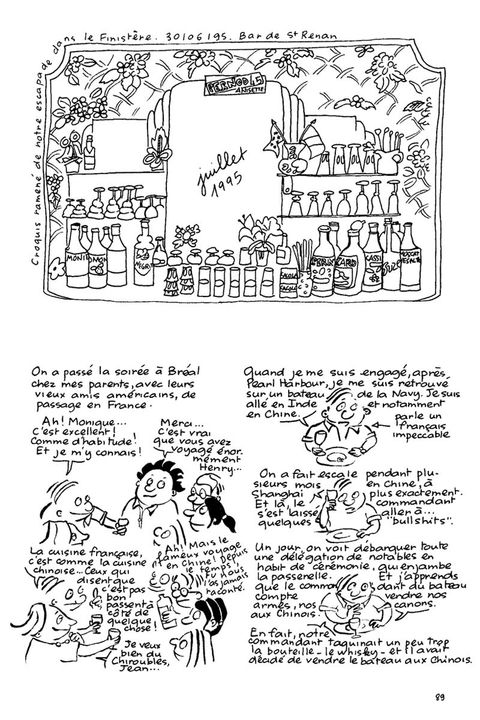 Croquis ramené de notre escapade dans le Finistère. 30/06/95. Bar de St Renan
PERNOD 45
ANISETTE
juillet
1995
MONIN
MON
CASS
On a passé la soirée à Bréal
chez mes parents, avec leurs
vieux amis américains, de
passage en France.
Ah! Monique...
C'est excellent!
Comme d'habitude!
Et je m'y connais!
Merci...
C'est vrai
que vous avez
voyagé énor-
mément
Henry...
La cuisine française,
c'est comme la cuisine
chinoise... Ceux qui
disent que
c'est pas
bon
passent à
côté de
quelque
chose!
Ah! Mais le
fameux voyage
en Chine! Depuis
le temps!
Tu nous
l'as jamais
raconté.
Je veux
bien du
Chiroubles,
Jean...
Quand je me suis engagé, après
Pearl Harbour, je me suis retrouvé
sur un bateau de la Navy. Je suis
allé en Inde et notamment
en Chine.
parle un
français
impeccable
On a fait escale pendant plu-
sieurs mois en Chine, à
Shanghaï plus exactement.
Et là, le commandant
s'est laissé aller à...
quelques "bullshits".
Un jour, on voit débarquer toute
une délégation de notables en
habit de cérémonie, qui enjambe
la passerelle. Et j'apprends
que le commandant du bateau
compte vendre nos
armes, nos canons.
aux Chinois.
En fait, notre
commandant taquinait un peu trop
la bouteille - le whisky - et il avait
décidé de vendre le bateau aux Chinois.
89